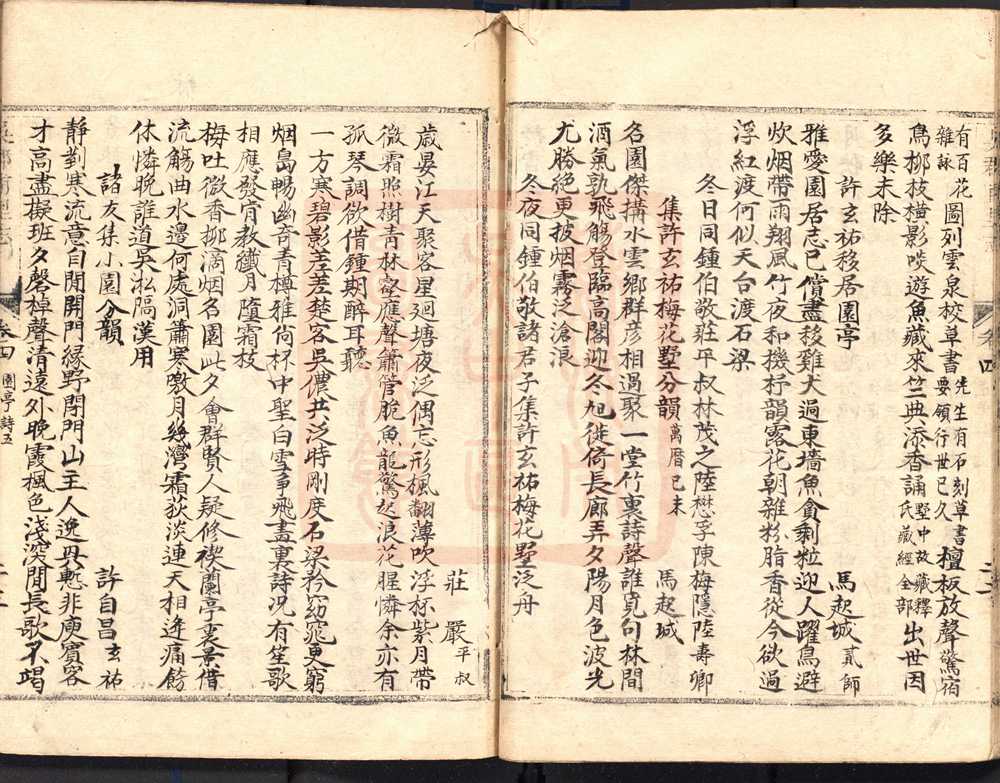 有百花雜詠圖列雲泉校草書先生有石刻草書要領行世已久檀板放聲驚宿
鳥柳枝橫影啖遊魚藏來竺典添香誦墅中故藏釋氏藏經全部出世因
多樂未除
許玄祐移居園亭 馬起城貳師
雅愛園居志已償盡移雞犬過東墻魚貪剩粒迎人躍鳥避
炊烟帶雨翔風竹夜和機杼韻露花朝雜粉脂香從今欲過
浮紅渡何似天台渡石梁
冬日同鍾伯敬莊平叔林茂之陸懋孚陳梅隱陸壽卿
集許玄祐梅花墅分韻萬曆己未 馬起城
名園傑搆水雲鄉群彦相過聚一堂竹裏詩聲誰覓句林間
酒氣孰飛觴登臨高閣迎冬旭徙倚長廊弄夕陽月色波光
尤勝絕更披烟霧泛滄浪
冬夜同鍾伯敬諸君子集許玄祐梅花墅泛舟
莊嚴平叔
歲晏江天聚客星迴塘夜泛偶忘形楓翻薄吹浮杯紫月帶
微霜照樹青林壑應聲簫管脆魚龍驚起浪花腥憐余亦有
孤琴調欲借鍾期醉耳聽
一方寒碧影差差楚客吳儂共泛時剛度石梁衿窈窕更窮
烟島暢幽奇青樽雅尚杯中聖白雪爭飛盡裏詩况有笙歌
相應發肯教纖月墮霜枝
梅吐微香柳滴烟名園此夕會群賢人疑修禊蘭亭裏景借
流觴曲水邊何處洞簫寒噭月幾灣霜荻淡連天相逢痛飲
休憐晚誰道吳淞隔漢用
諸友集小園分韻 許自昌玄祐
靜對寒流意自閒開門綠野閉門山主人逸興慙非庾賓客
才高盡擬班夕磬棹聲清遠外晚霞楓色淺深間長歌不竭
卷四 園亭詩五
卷四